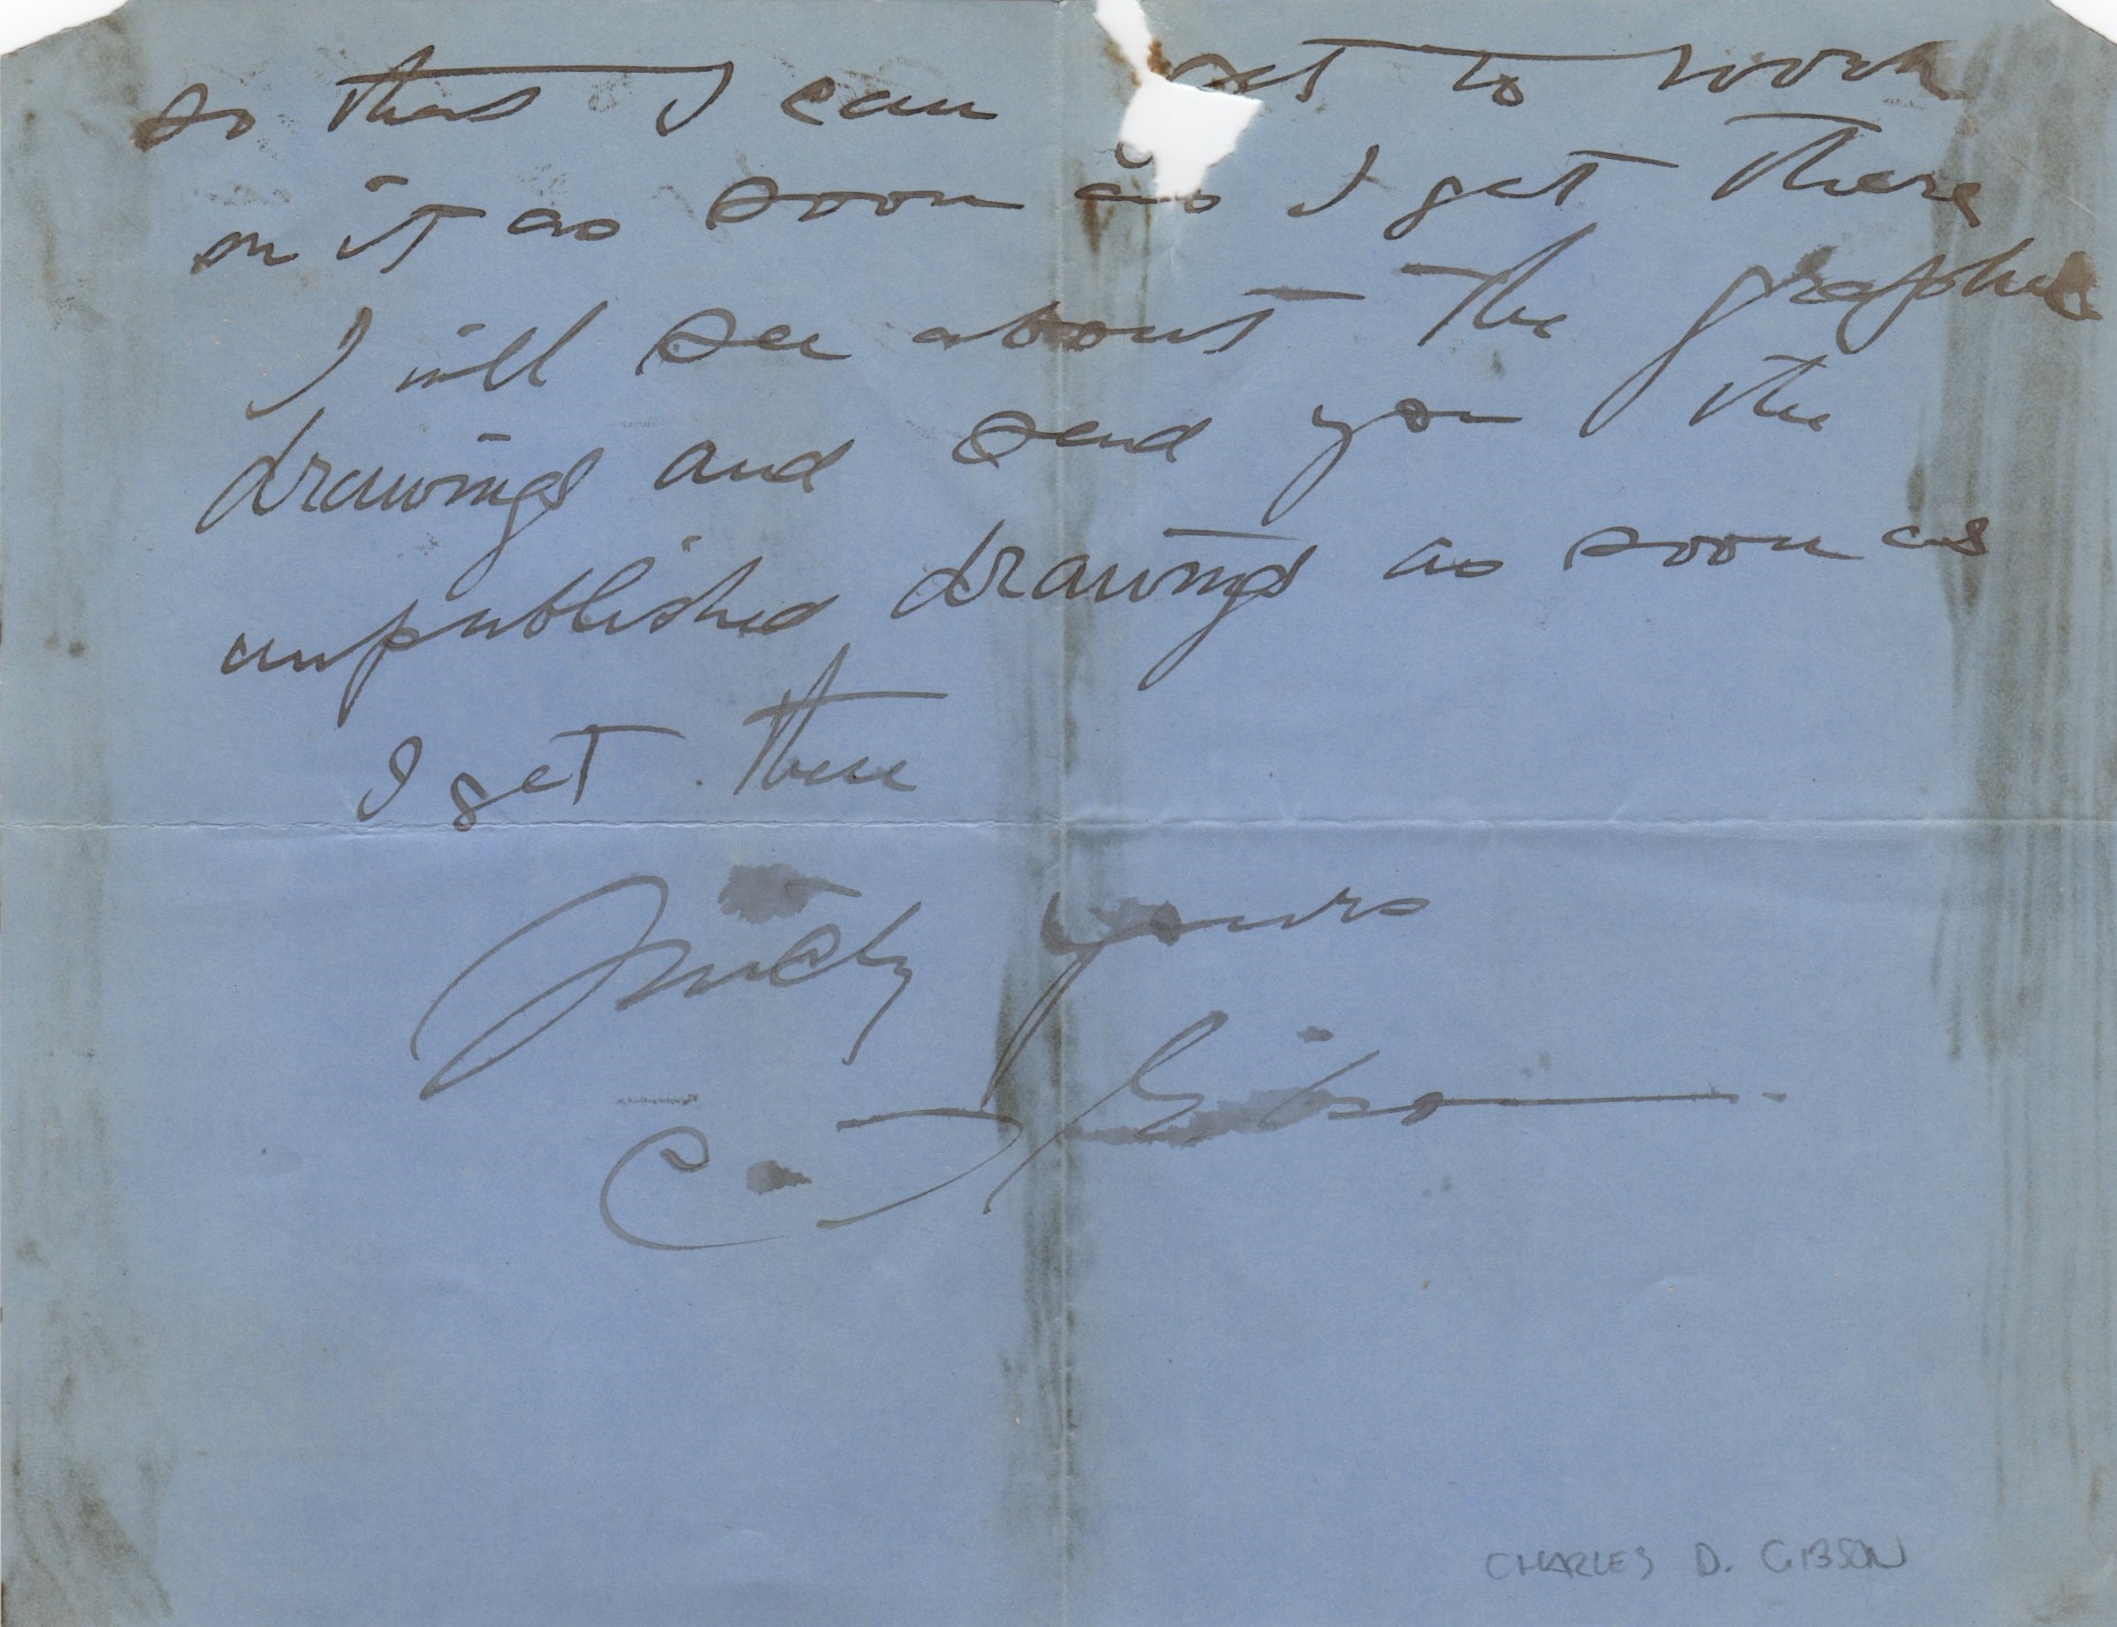 so that I can get to work
on it as soon as I get there
I will see about the graphic
drawings and send you the
unpublished drawings as soon as
I get there
Truly yours
C D Gibson
CHARLES D. GIBSON